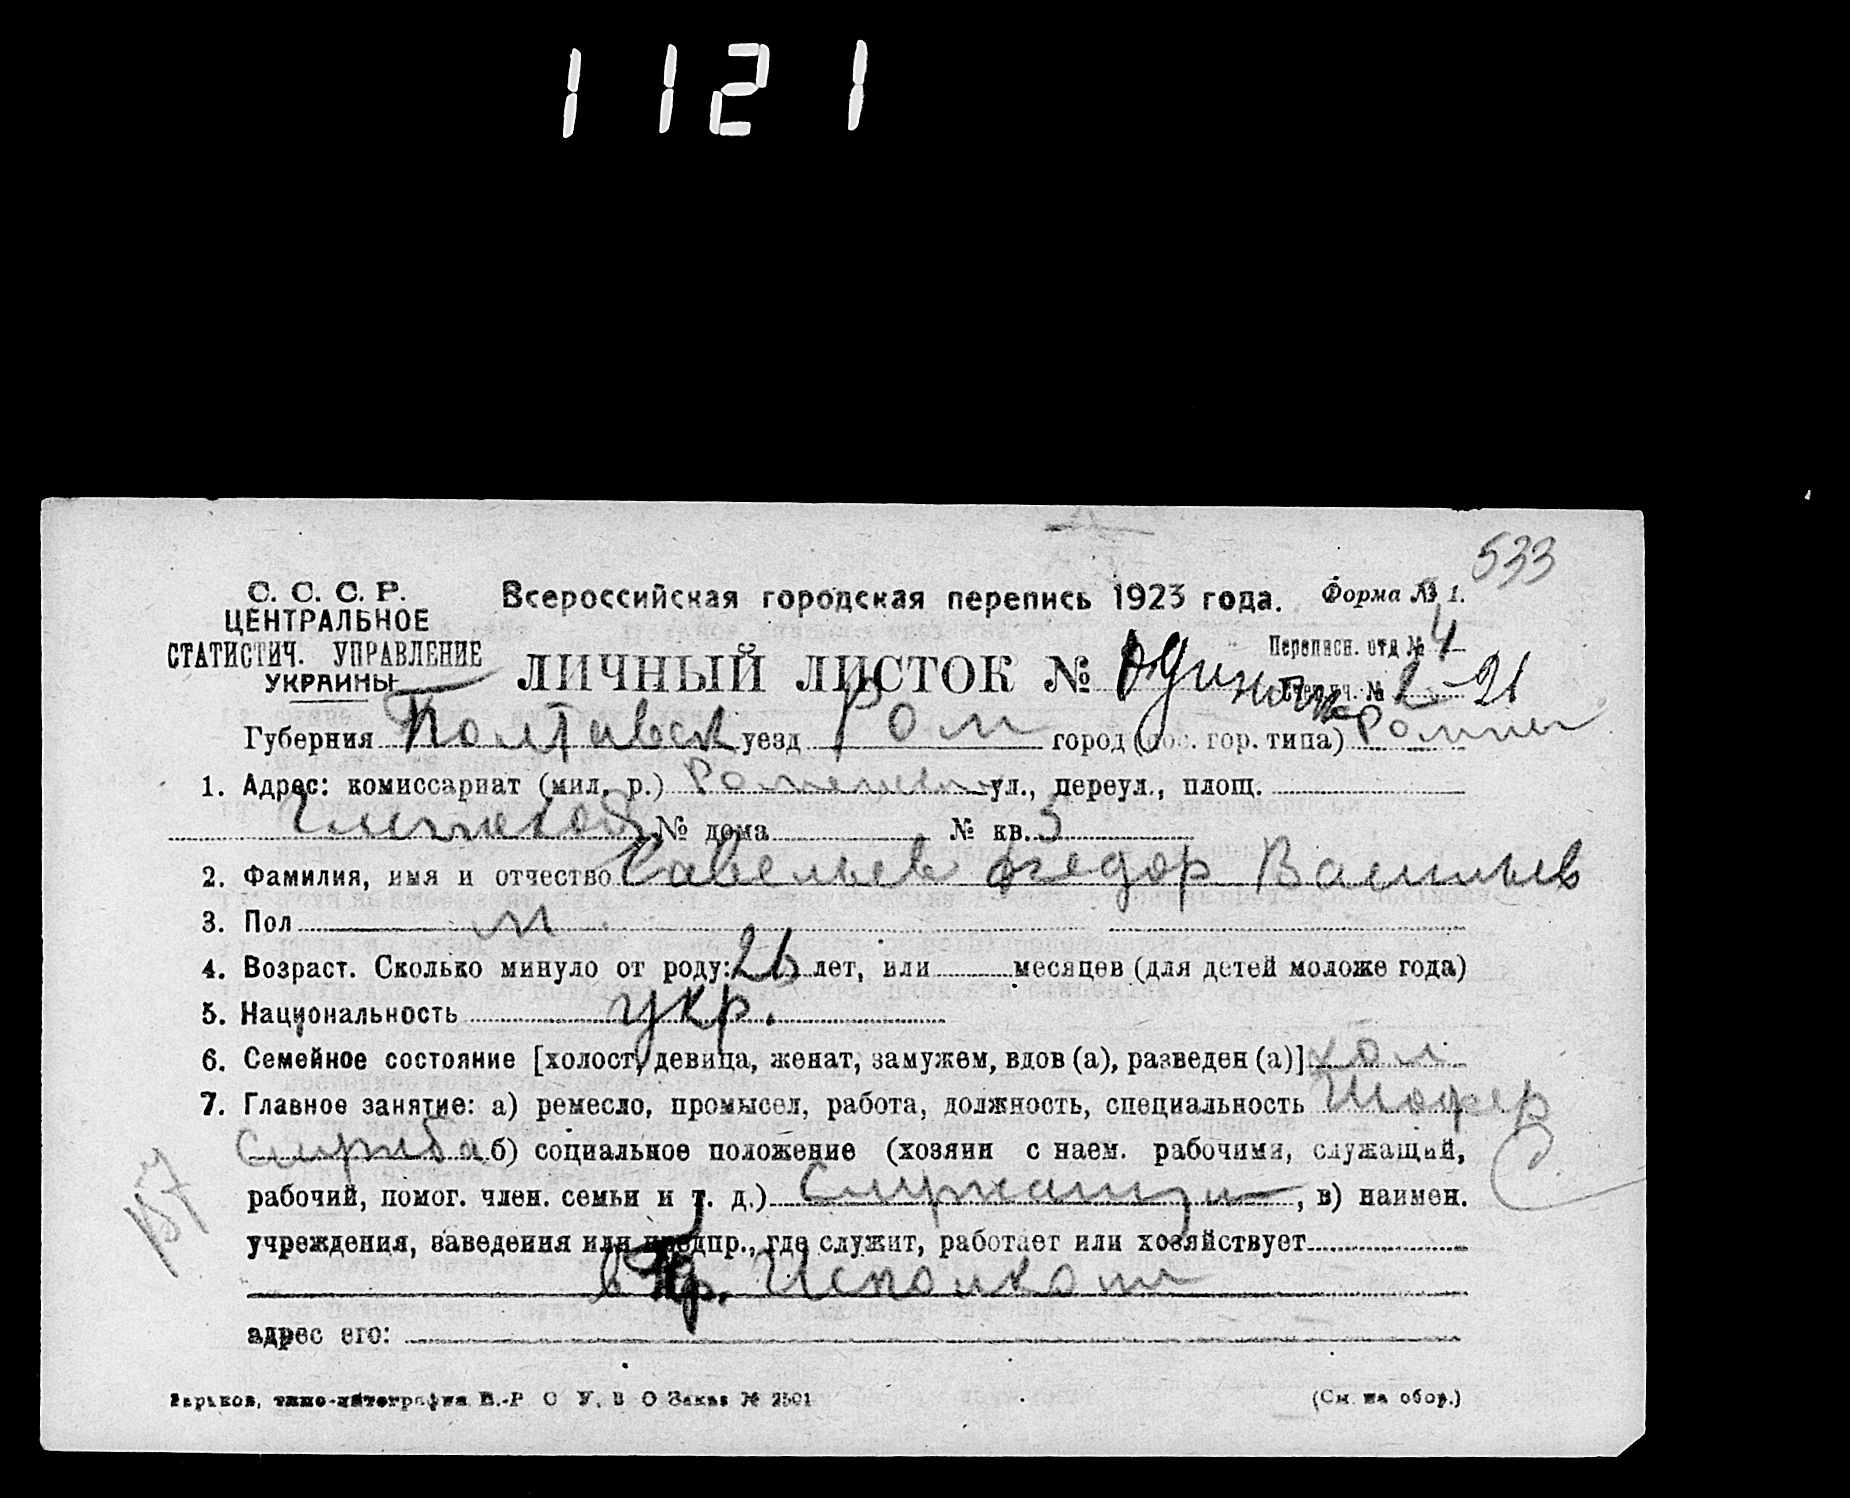 1121
533
С. С. С. Р.
ЦЕНТРАЛЬНОЕ
СТАТИСТИЧ. УПРАВЛЕНИЕ
УКРАИНЫ
Всероссийская городская перепись 1923 года.
Форма № 1.
Переписн. отд № 4
ЛИЧНЫЙ ЛИСТОК №
№ 2-21
Губерния Полтавск уезд Ром город (пос. гор. типа) Ромны
1. Адрес: комиссариат (мил. р.) ул., переул., площ.
№ дома № кв. 5
2. Фамилия, имя и отчество Савельев Федор Васильев
3. Пол м
4. Возраст. Сколько минуло от роду: 26 лет, или месяцев (для детей моложе года)
5. Национальность укр.
6. Семейное состояние [холост, девица, женат, замужем, вдов (а), разведен (а)] хол
7. Главное занятие: а) ремесло, промысел, работа, должность, специальность Шофер
служба б) социальное положение (хозяин с наем. рабочими, служащий,
рабочий, помог. член. семьи и т. д.) Служащий, в) наимен.
учреждения, заведения или предпр., где служит, работает или хозяйствует
в Окр. Исполком
адрес его:
Харьков, типо-литография В.-Р О У. В О Заказ № 2501
(См. на обор.)